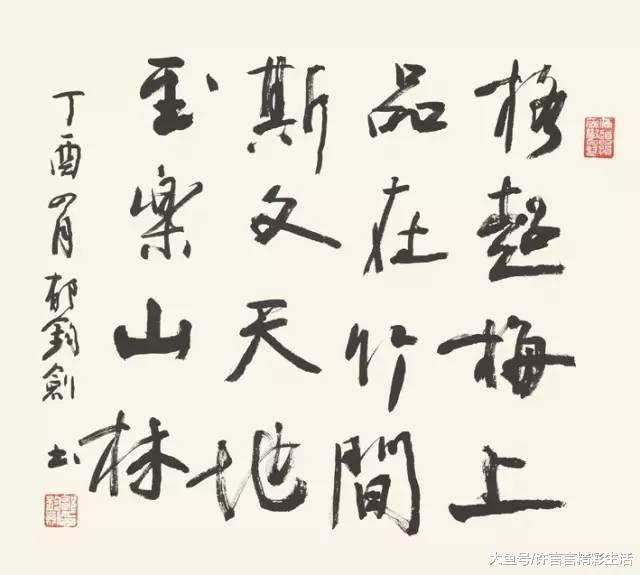 格超梅上
品在竹間
斯文天地
至樂山林
丁酉四月郁鈞劍书
大鱼号/许言言精彩生活